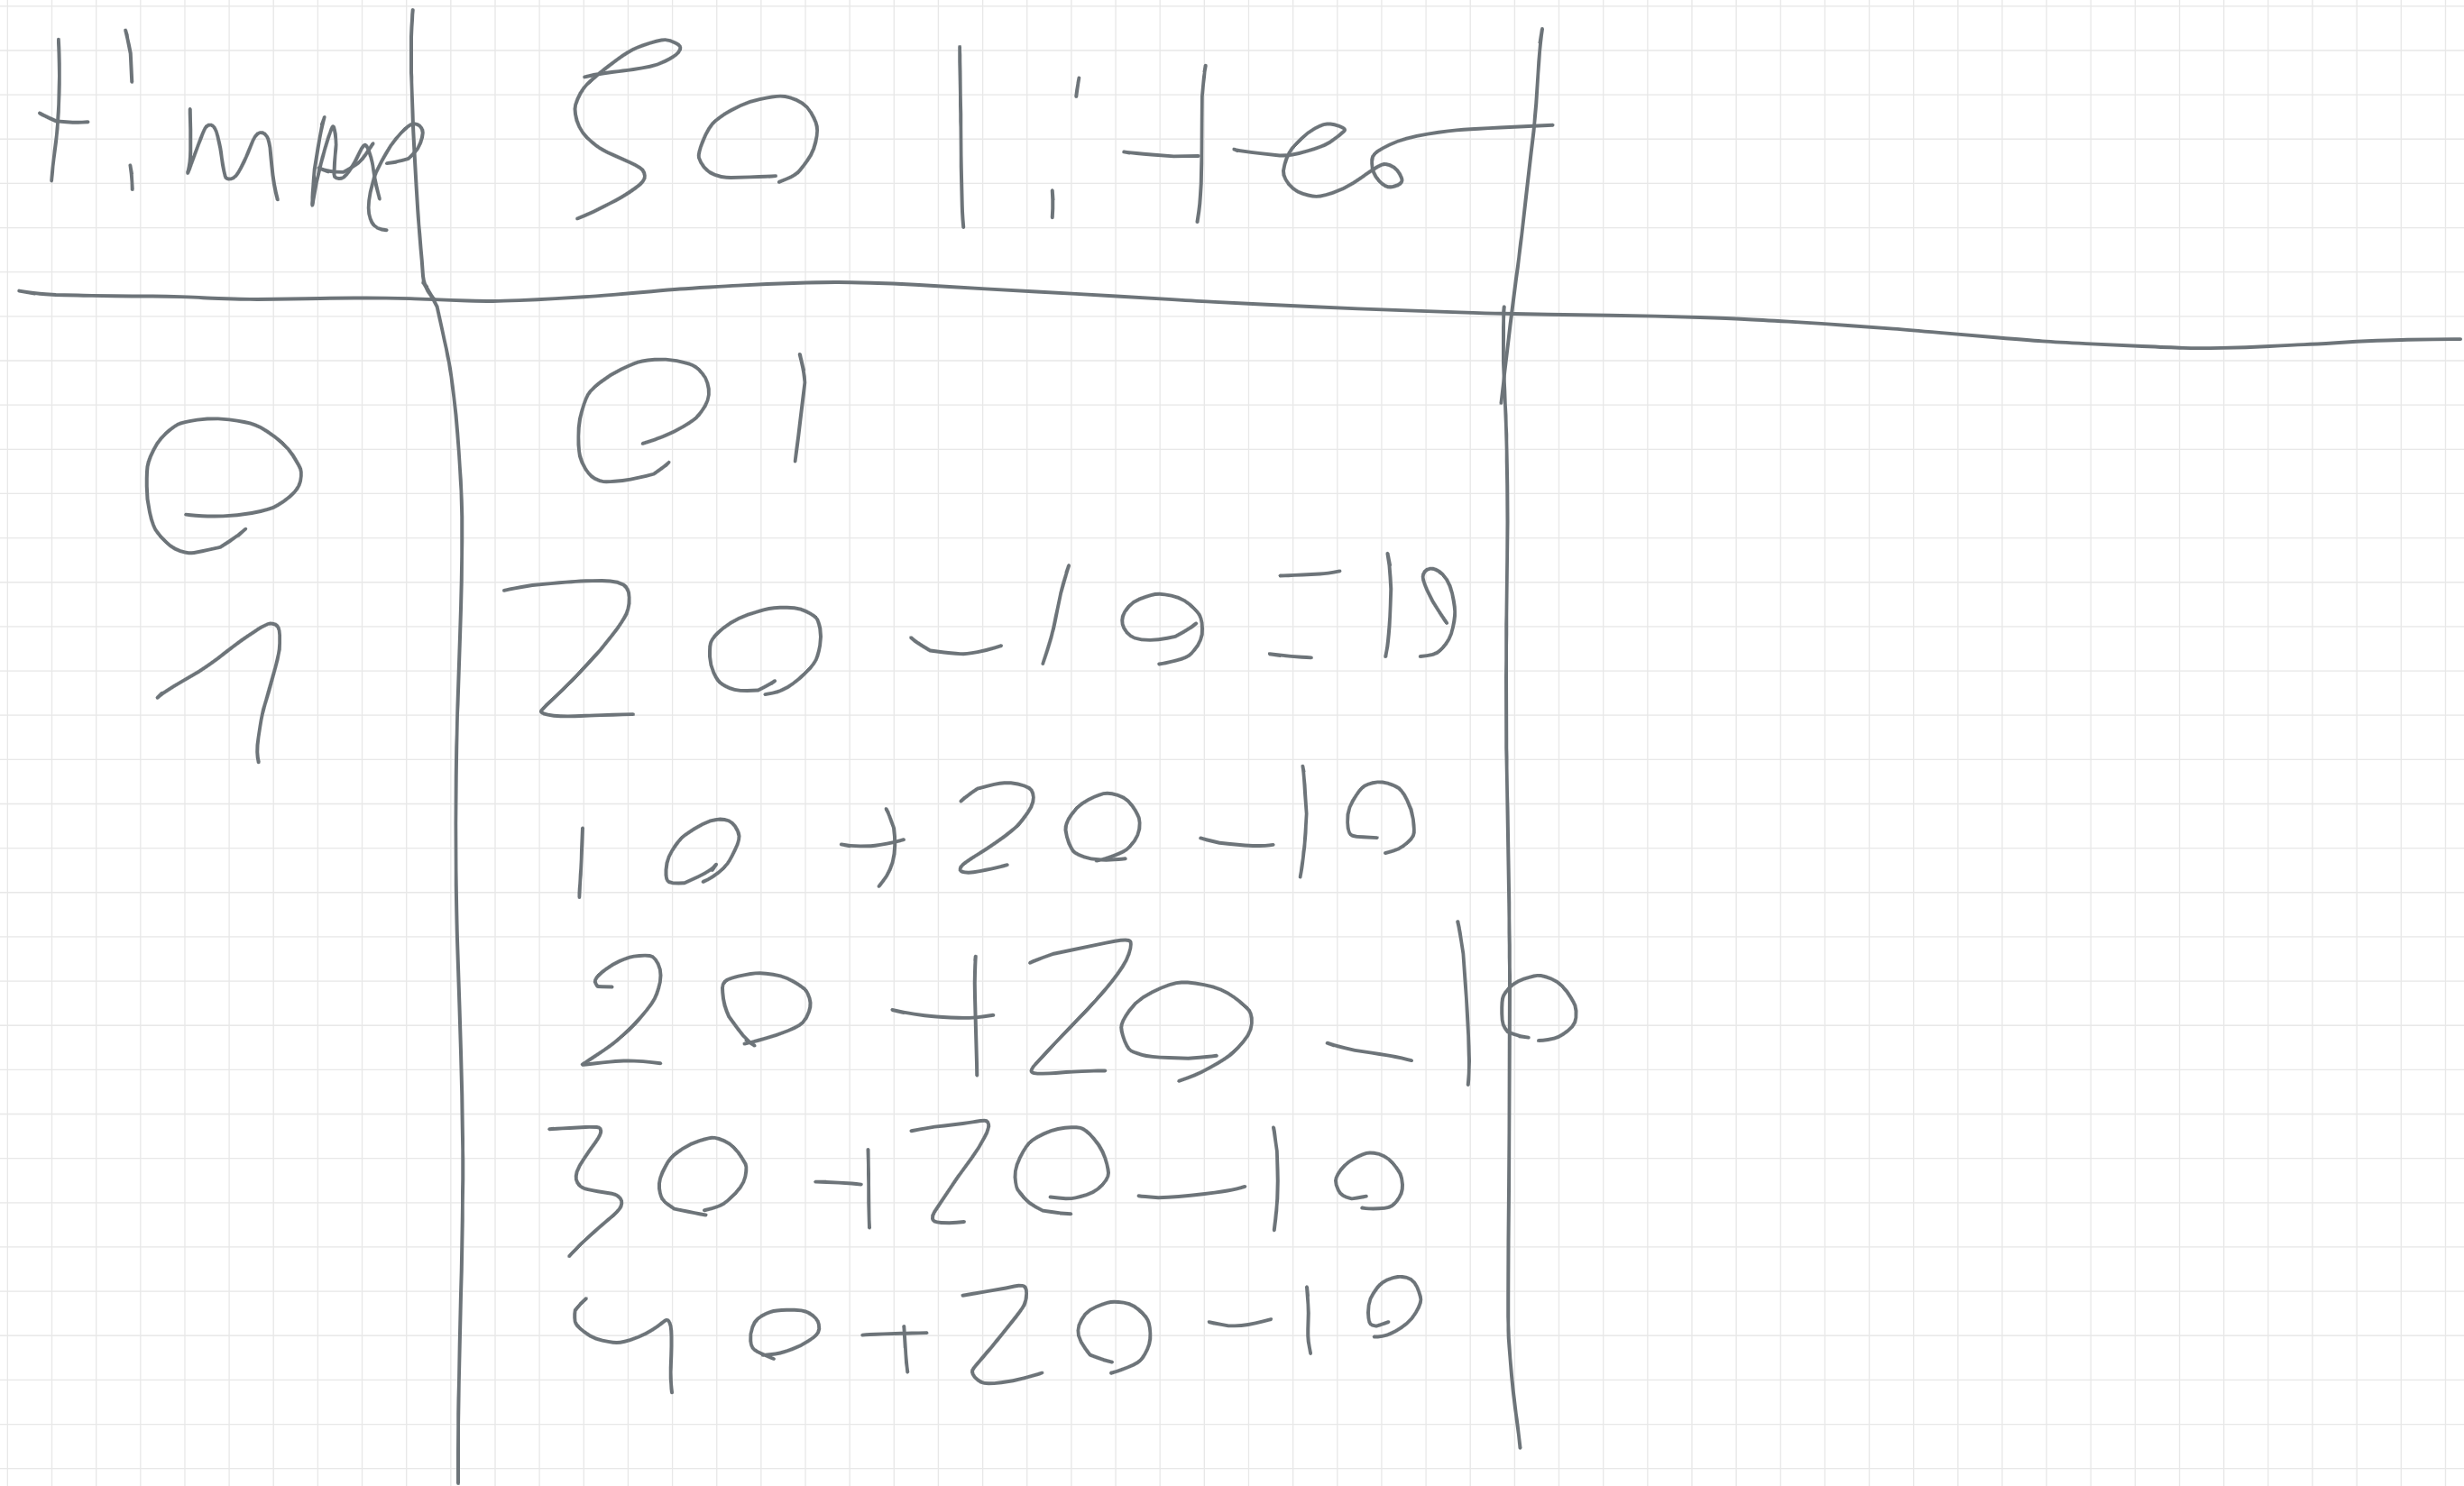 time 50 liter
0 01
1 20 - 10 = 10
10 + 20 - 10
20 + 20 - 10
30 + 20 - 10
40 + 20 - 10